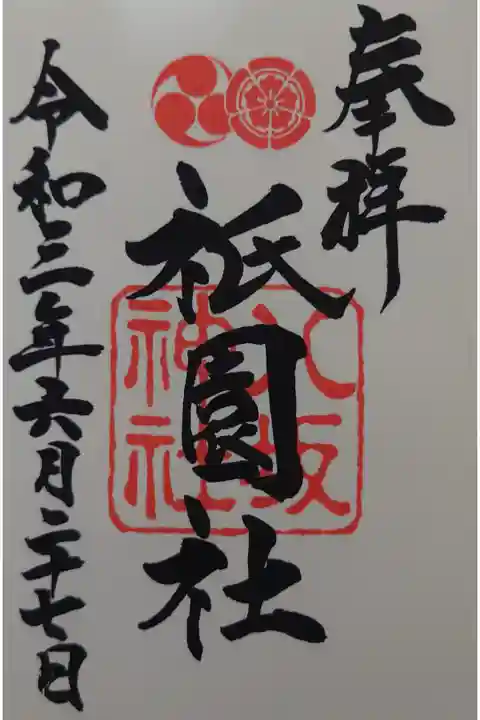 奉拝
祇園社
八坂
神社
令和三年六月二十七日